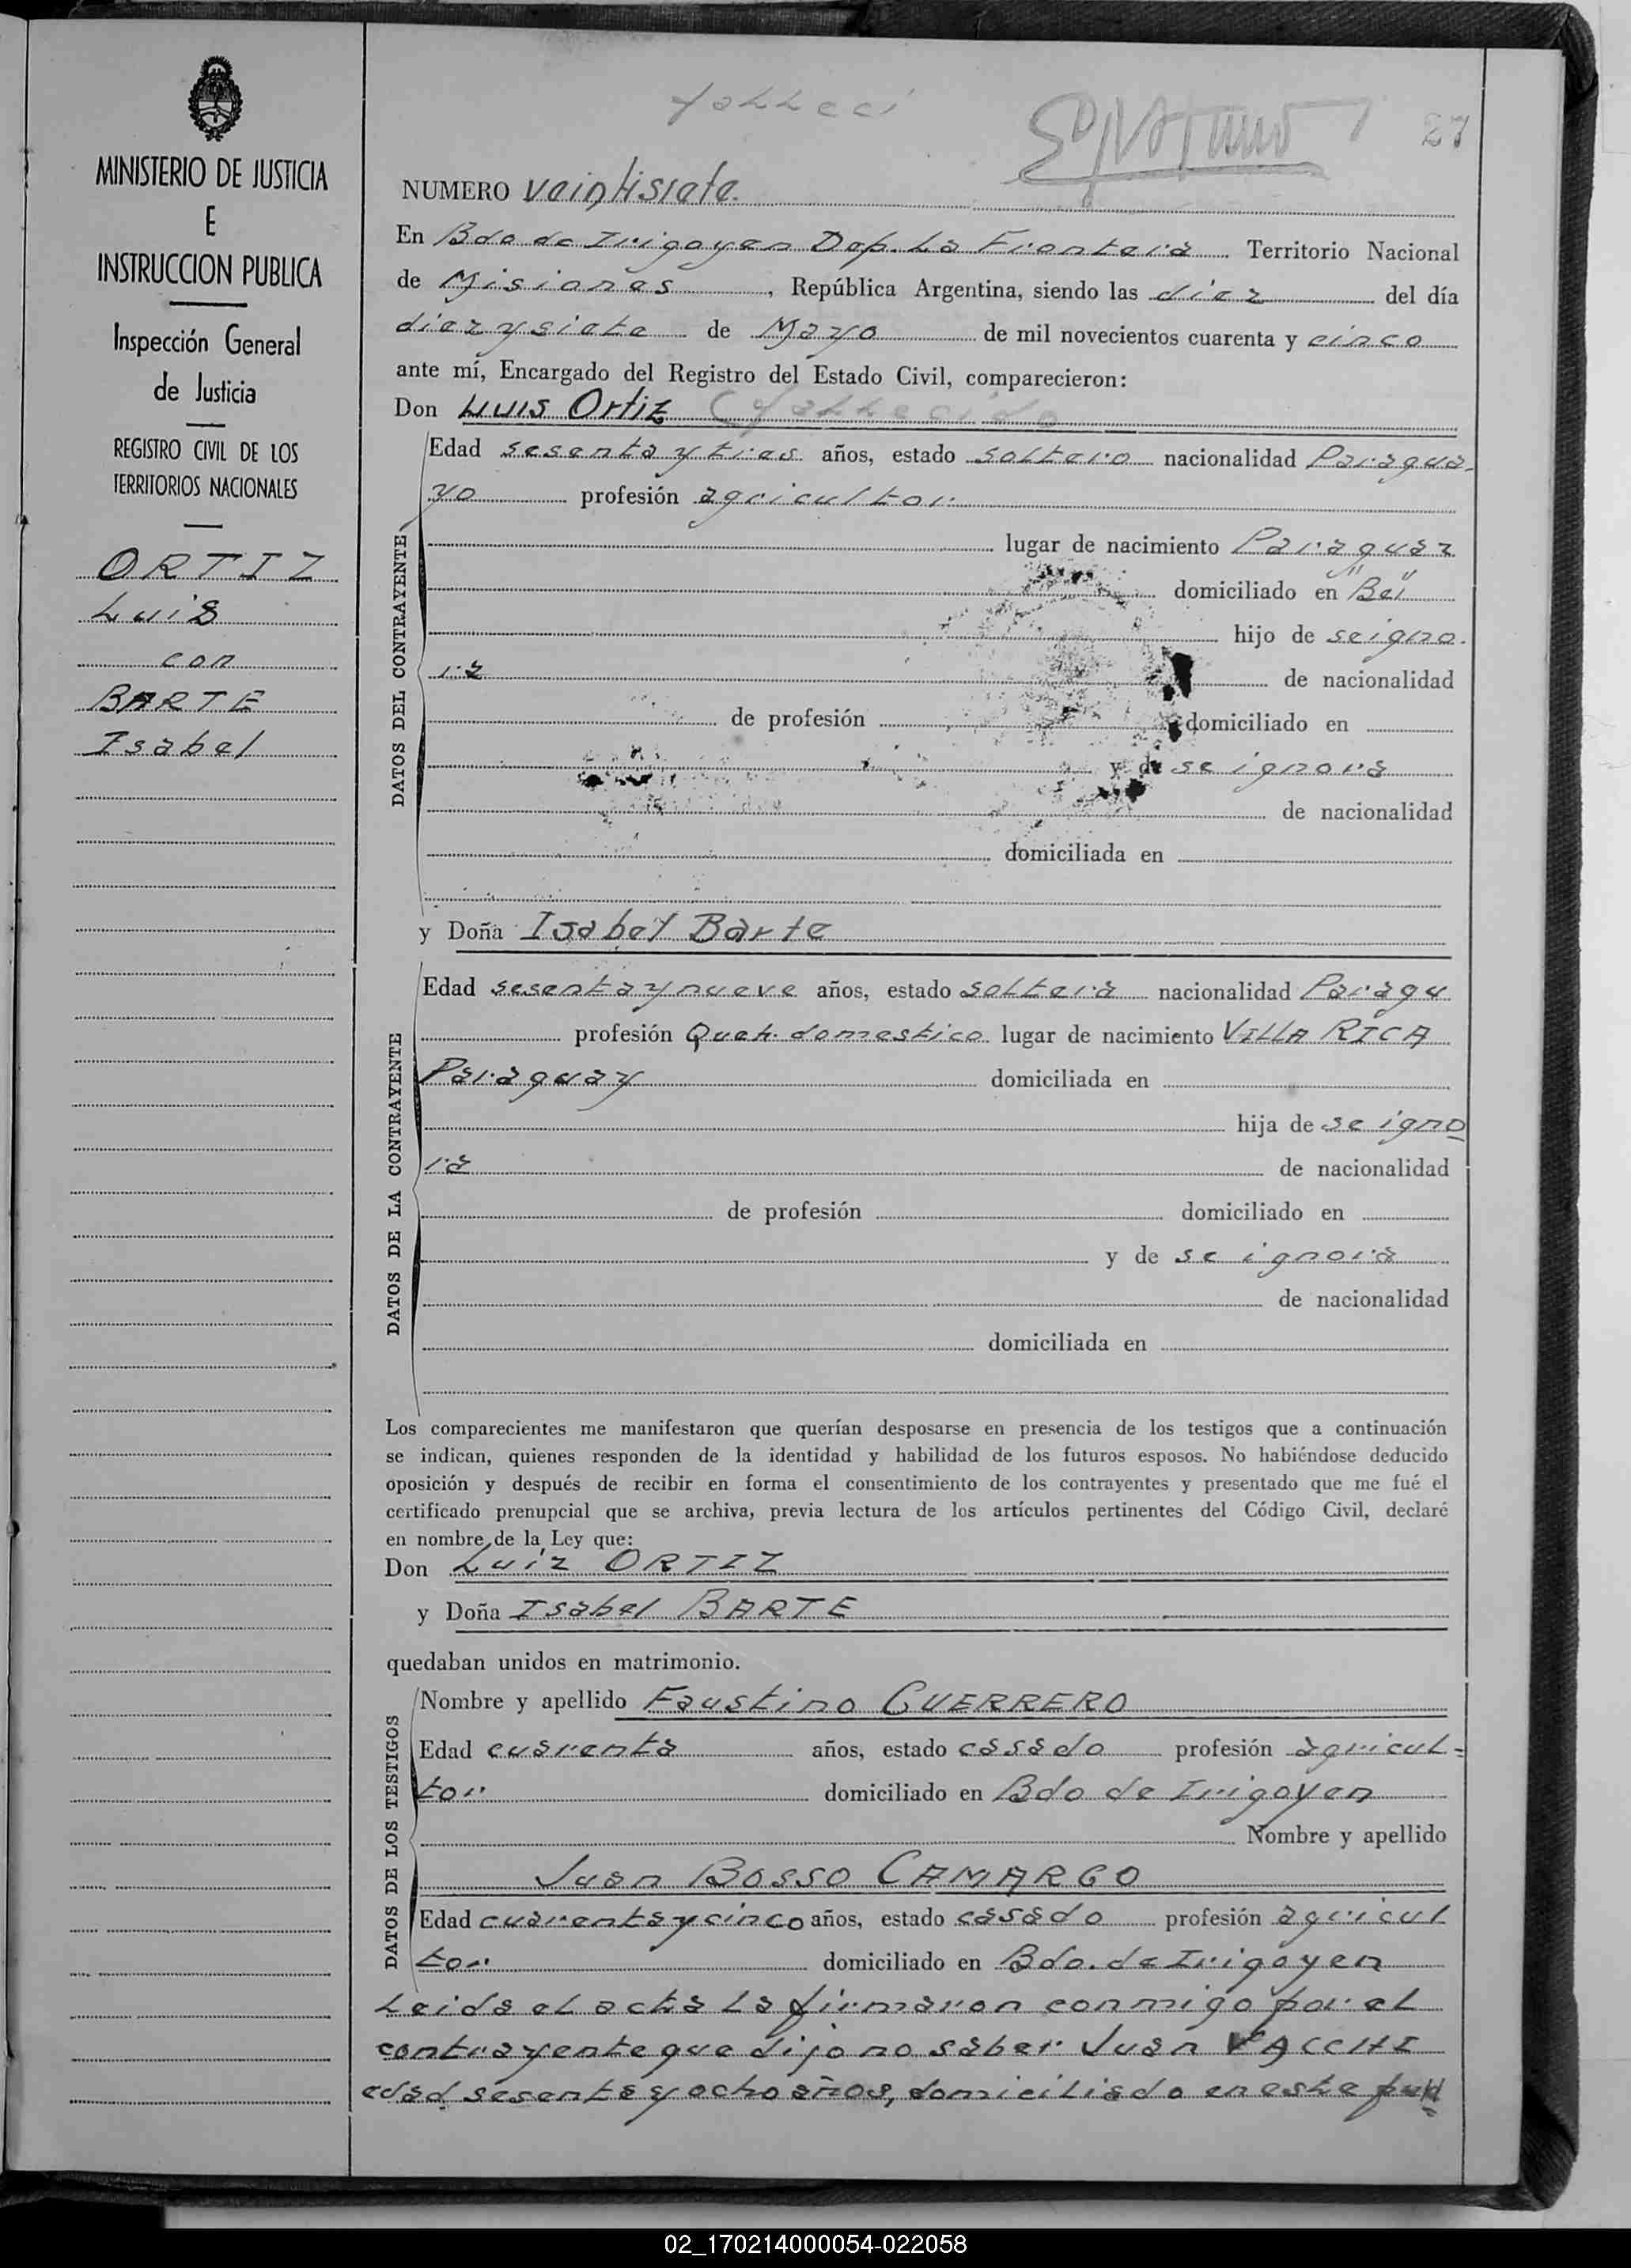 falleci
27
MINISTERIO DE JUSTICIA
E
INSTRUCCION PUBLICA
Inspección General
de Justicia
REGISTRO CIVIL DE LOS
TERRITORIOS NACIONALES
ORTIZ
Luis
con
BARTE
Isabel
NUMERO veintisiete.
En Bdo de Irigoyen Dep. La Frontera Territorio Nacional
de Misiones, República Argentina, siendo las diez del día
diez y siete de Mayo de mil novecientos cuarenta y cinco
ante mí, Encargado del Registro del Estado Civil, comparecieron:
Don Luis Ortiz (fallecido
DATOS DEL CONTRAYENTE
Edad sesenta y tres años, estado soltero nacionalidad Paragua-
yo profesión agricultor
lugar de nacimiento Paraguay
domiciliado en
hijo de seigno.
ra de nacionalidad
de profesión domiciliado en
y de se ignora
de nacionalidad
domiciliada en
y Doña Isabel Barte
DATOS DE LA CONTRAYENTE
Edad sesenta y nueve años, estado soltera nacionalidad Paragu
profesión Queh. domestico lugar de nacimiento VILLA RICA
Paraguay domiciliada en
hija de se igno
ra de nacionalidad
de profesión domiciliado en
y de se ignora
de nacionalidad
domiciliada en
Los comparecientes me manifestaron que querían desposarse en presencia de los testigos que a continuación
se indican, quienes responden de la identidad y habilidad de los futuros esposos. No habiéndose deducido
oposición y después de recibir en forma el consentimiento de los contrayentes y presentado que me fué el
certificado prenupcial que se archiva, previa lectura de los artículos pertinentes del Código Civil, declaré
en nombre de la Ley que:
Don Luiz ORTIZ
y Doña Isabel BARTE
quedaban unidos en matrimonio.
DATOS DE LOS TESTIGOS
Nombre y apellido Faustino GUERRERO
Edad cuarenta años, estado casado profesión agricul=
tor domiciliado en Bdo de Irigoyen
Nombre y apellido
Juan BOSSO CAMARGO
Edad cuarenta y cinco años, estado casado profesión agricul
tor domiciliado en Bdo. de Irigoyen
Leida el acta la firmaron conmigo por el
contrayente que dijo no saber Juan VACCHI
edad sesenta y ocho años, domiciliado en este pun
02_170214000054-022058